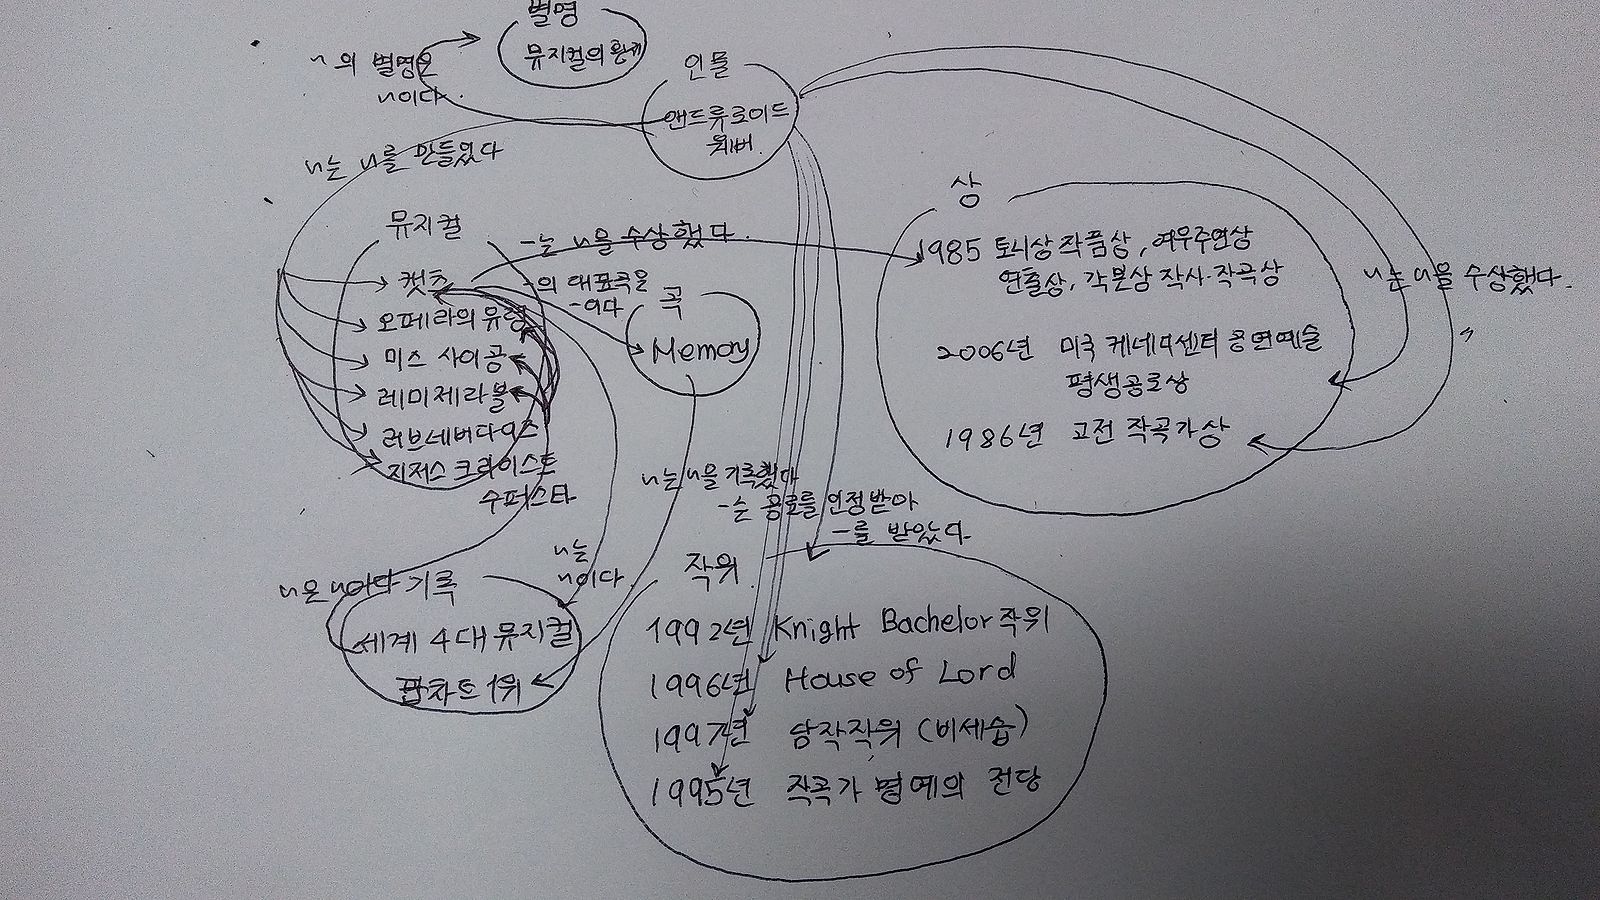 별명
뮤지컬의 황제
~의 별명은
~이다.
인물
앤드류로이드
웨버.
~는 ~를 만들었다
뮤지컬
캣츠
오페라의 유령
미스 사이공
레미제라블
러브네버다이즈
지저스 크라이스트
수퍼스타
-는 ~을 수상했다.
-의 대표곡은
-이다
곡
Memory
상
1985 토니상 작품상, 여우주연상
연출상, 각본상 작사·작곡상
2006년 미국 케네디센터 공연예술
평생공로상
1986년 고전 작곡가상
~는 ~을 수상했다.
~는 ~을 기록했다
-는 공로를 인정받아
-를 받았다.
~은 ~이다
기록
세계 4대 뮤지컬
팝차트 1위
~는
~이다.
작위
1992년 Knight Bachelor 작위
1996년 House of Lord
1997년 남작작위 (비세습)
1995년 작곡가 명예의 전당